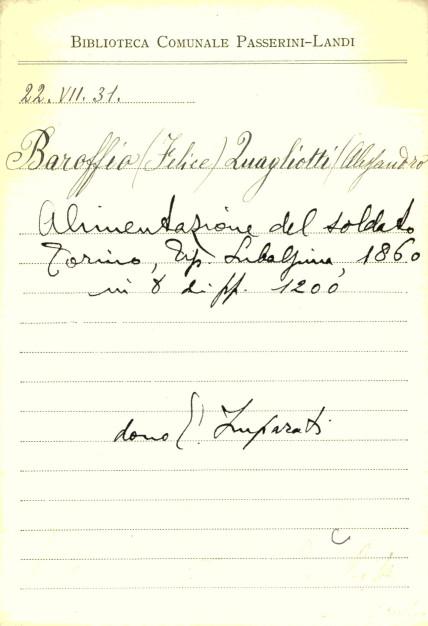 BIBLIOTECA COMUNALE PASSERINI-LANDI
22. VII. 31.
Baroffio (Felice) Quagliotti (Alessandro
Alimentazione del soldato
Torino, Tip. Subalpina, 1860
in 8 di pp. 1200
dono E. Imparati
C